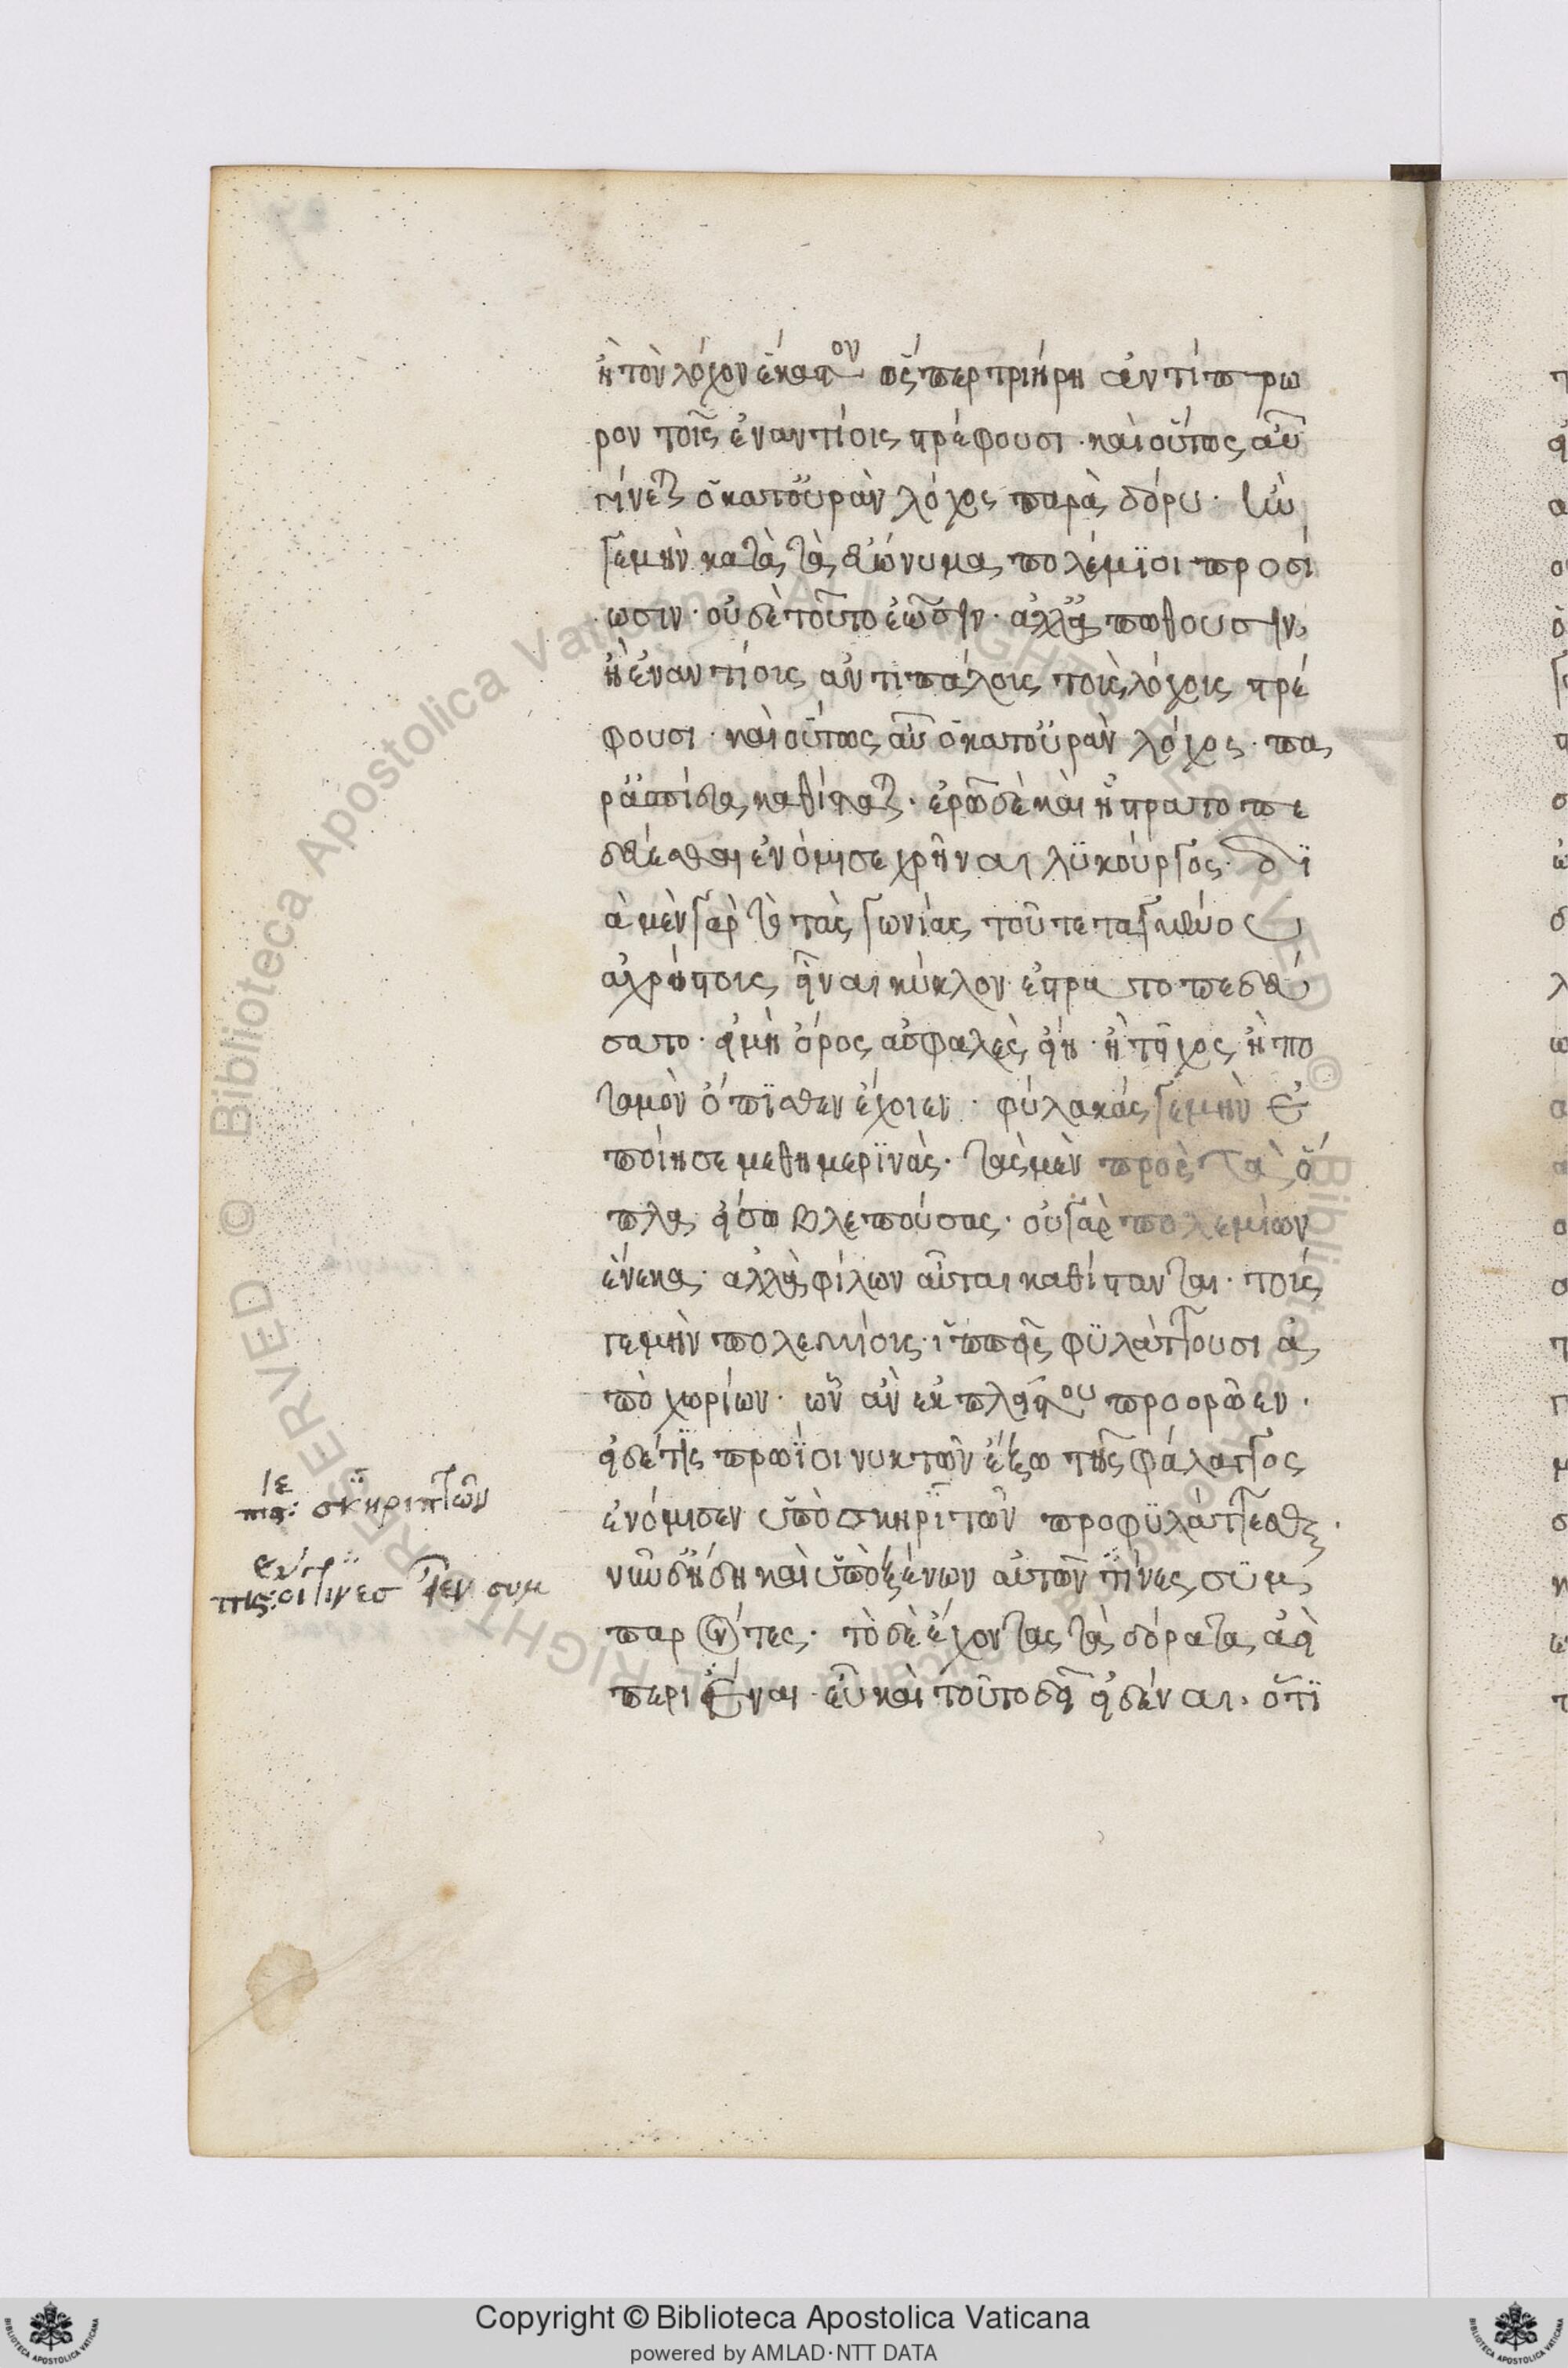 ἢ τὸν λόχον ἕκαστον ὥσπερ τριήρη ἀντίπρω
ρον τοῖς ἐναντίοις στρέφουσι· καὶ οὕτως αὖ
γίνεται ὁ κατ' οὐρὰν λόχος παρὰ δόρυ· ἢν
γε μὴν κατὰ τὰ εὐώνυμα πολέμϊοι προσί
ωσιν· οὐδὲ τοῦτο ἐῶσιν· ἀλλὰ
ἢ ἐναντίοις ἀντιπάλοις τοὺς λόχους στρέ
φουσι· καὶ οὕτως αὖ ὁ κατ' οὐρὰν λόχος· πα
ρ' ἀσπίδα καθίσταται· ἐρῶ δὲ καὶ ᾗ στρατοπε
δεύεσθαι ἐνόμισε χρῆναι λϋκοῦργος· δϊ
ὰ μὲν γὰρ τὸ τὰς γωνίας τοῦ τετραγώνου
ἀχρήστους εἶναι κύκλον ἐστρατοπεδεύ
σατο· εἰ μὴ ὄρος ἀσφαλὲς εἴη· ἢ τεῖχος ἢ πο
ταμὸν ὄπϊσθεν ἔχοιεν· φύλακάς γε μὴν ἐ
ποίησε μεθημερϊνάς· τὰς μὲν πρὸς τὰ ὅ
πλα εἴσω βλεπούσας· οὐ γὰρ πολεμίων
ἕνεκα· ἀλλὰ φίλων αὗται καθίστανται· τοὺς
γε μὴν πολεμίους· ἱππεῖς φϋλάττουσι ἀ
πὸ χωρίων· ὧν ἂν ἐκ πλείστου προορῷεν·
εἰ δέ τις προΐοι νυκτὸς ἔξω τῆς φάλαγγος
ἐνόμισεν ὑπὸ σκηρϊτῶν προφϋλάττεσθαι·
νῦν δ' ἤδη καὶ ὑπὸ ξένων αὐτῶν τινες συμ
παρόντες· τὸ δὲ ἔχοντας τὰ δόρατα ἀεὶ
περιϊέναι· εὖ καὶ τοῦτο δεῖ εἰδέναι· ὅτϊ
σκηριτῶν
οἵτινεσ συμ
Copyright © Biblioteca Apostolica Vaticana
powered by AMLAD·NTT DATA